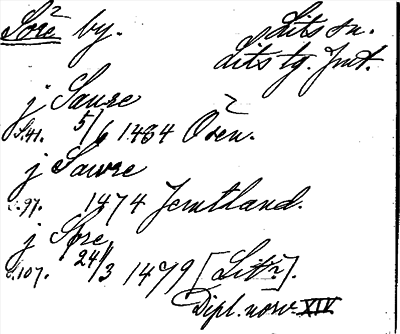 Söre by. Lits sn.
Lits tg. Jmt.
j Saure
S.41. 5/6 1434 Ösen.
j Sawre
s.97. 1474 Jemtland.
j Söre
s.107. 24/3 1479 [Lit?].
Dipl. norv. XIV